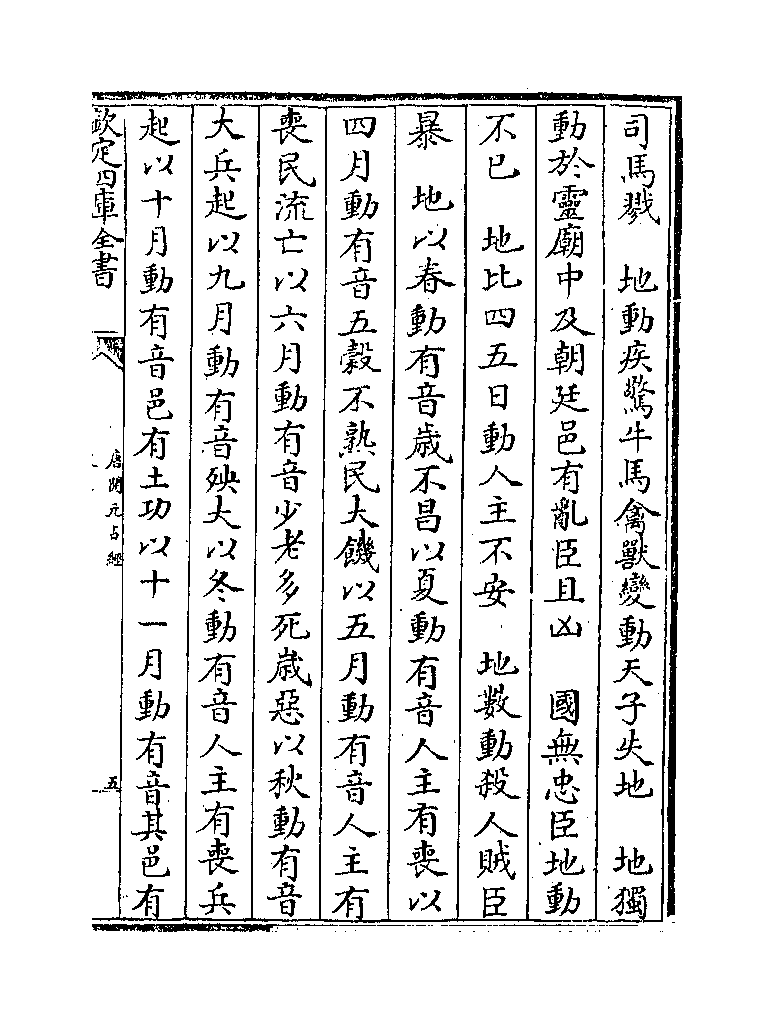 司馬戮　地動疾驚牛馬禽獸變動天子失地　地獨
動於靈廟中及朝廷邑有亂臣且凶　國無忠臣地動
不已　地比四五日動人主不安　地數動殺人賊臣
暴　地以春動有音歳不昌以夏動有音人主有喪以
四月動有音五穀不熟民大饑以五月動有音人主有
喪民流亡以六月動有音少老多死歳惡以秋動有音
大兵起以九月動有音殃大以冬動有音人主有喪兵
起以十月動有音邑有土功以十一月動有音其邑有
欽定四庫全書
唐開元占經
五